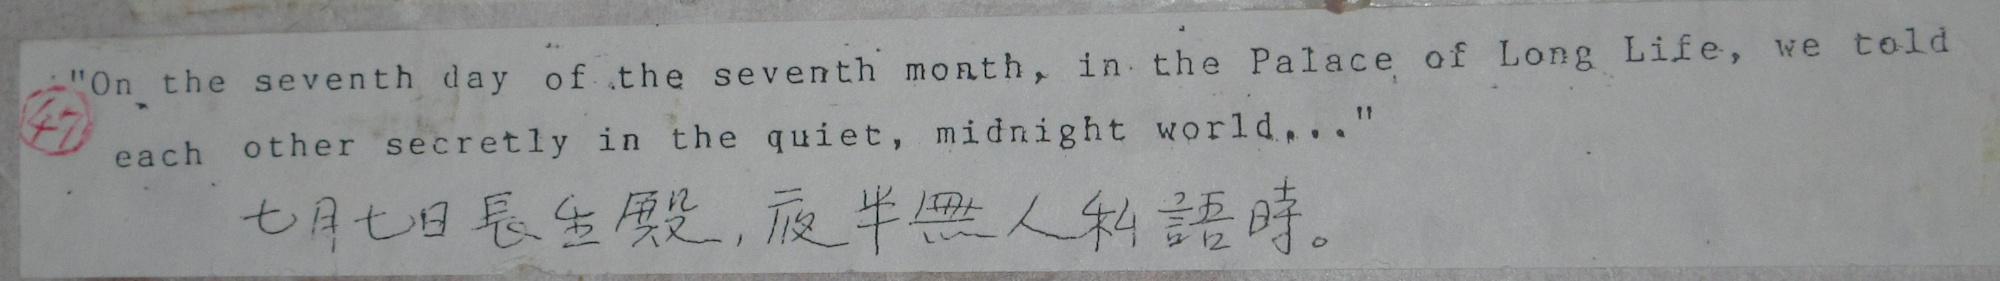 "On the seventh day of the seventh month, in the Palace of Long Life, we told
47
each other secretly in the quiet, midnight world..."
七月七日長生殿,夜半無人私語時。